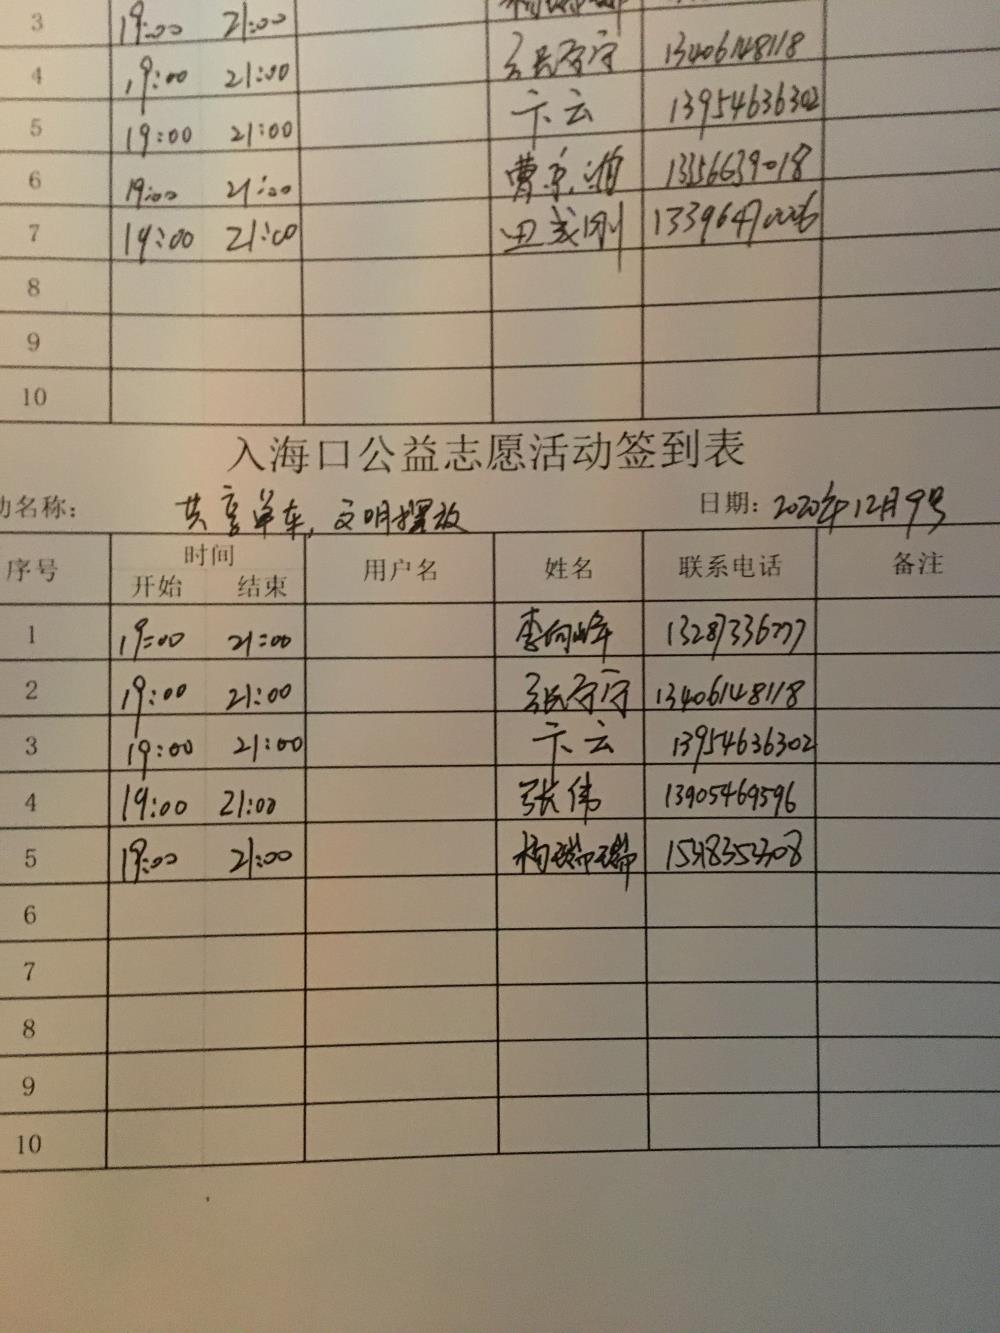 3 19:00 21:00
4 19:00 21:00 张守宁 13406148118
5 19:00 21:00 卞云 13954636302
6 19:00 21:00
7 19:00 21:00 13396470026
8
9
10
入海口公益志愿活动签到表
动名称: 共享单车,文明摆放 日期: 2020年12月9号
序号 时间 用户名 姓名 联系电话 备注
开始 结束
1 19:00 21:00 李向峰 13287336777
2 19:00 21:00 张守宁 13406148118
3 19:00 21:00 卞云 13954636302
4 19:00 21:00 张伟 13905469596
5 19:00 21:00 杨瑞瑞
6
7
8
9
10